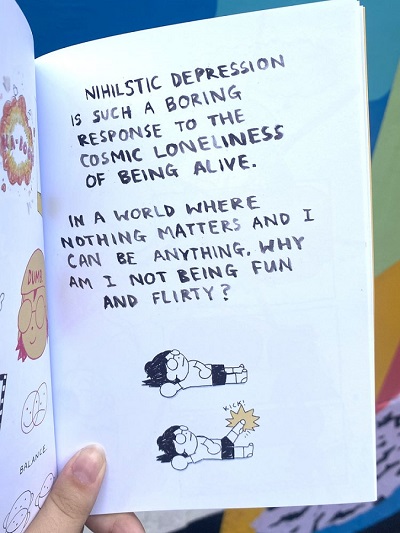 NIHILSTIC DEPRESSION
IS SUCH A BORING
RESPONSE TO THE
COSMIC LONELINESS
OF BEING ALIVE.
IN A WORLD WHERE
NOTHING MATTERS AND I
CAN BE ANYTHING, WHY
AM I NOT BEING FUN
AND FLIRTY?
KICK!
DUMB
BALANCE